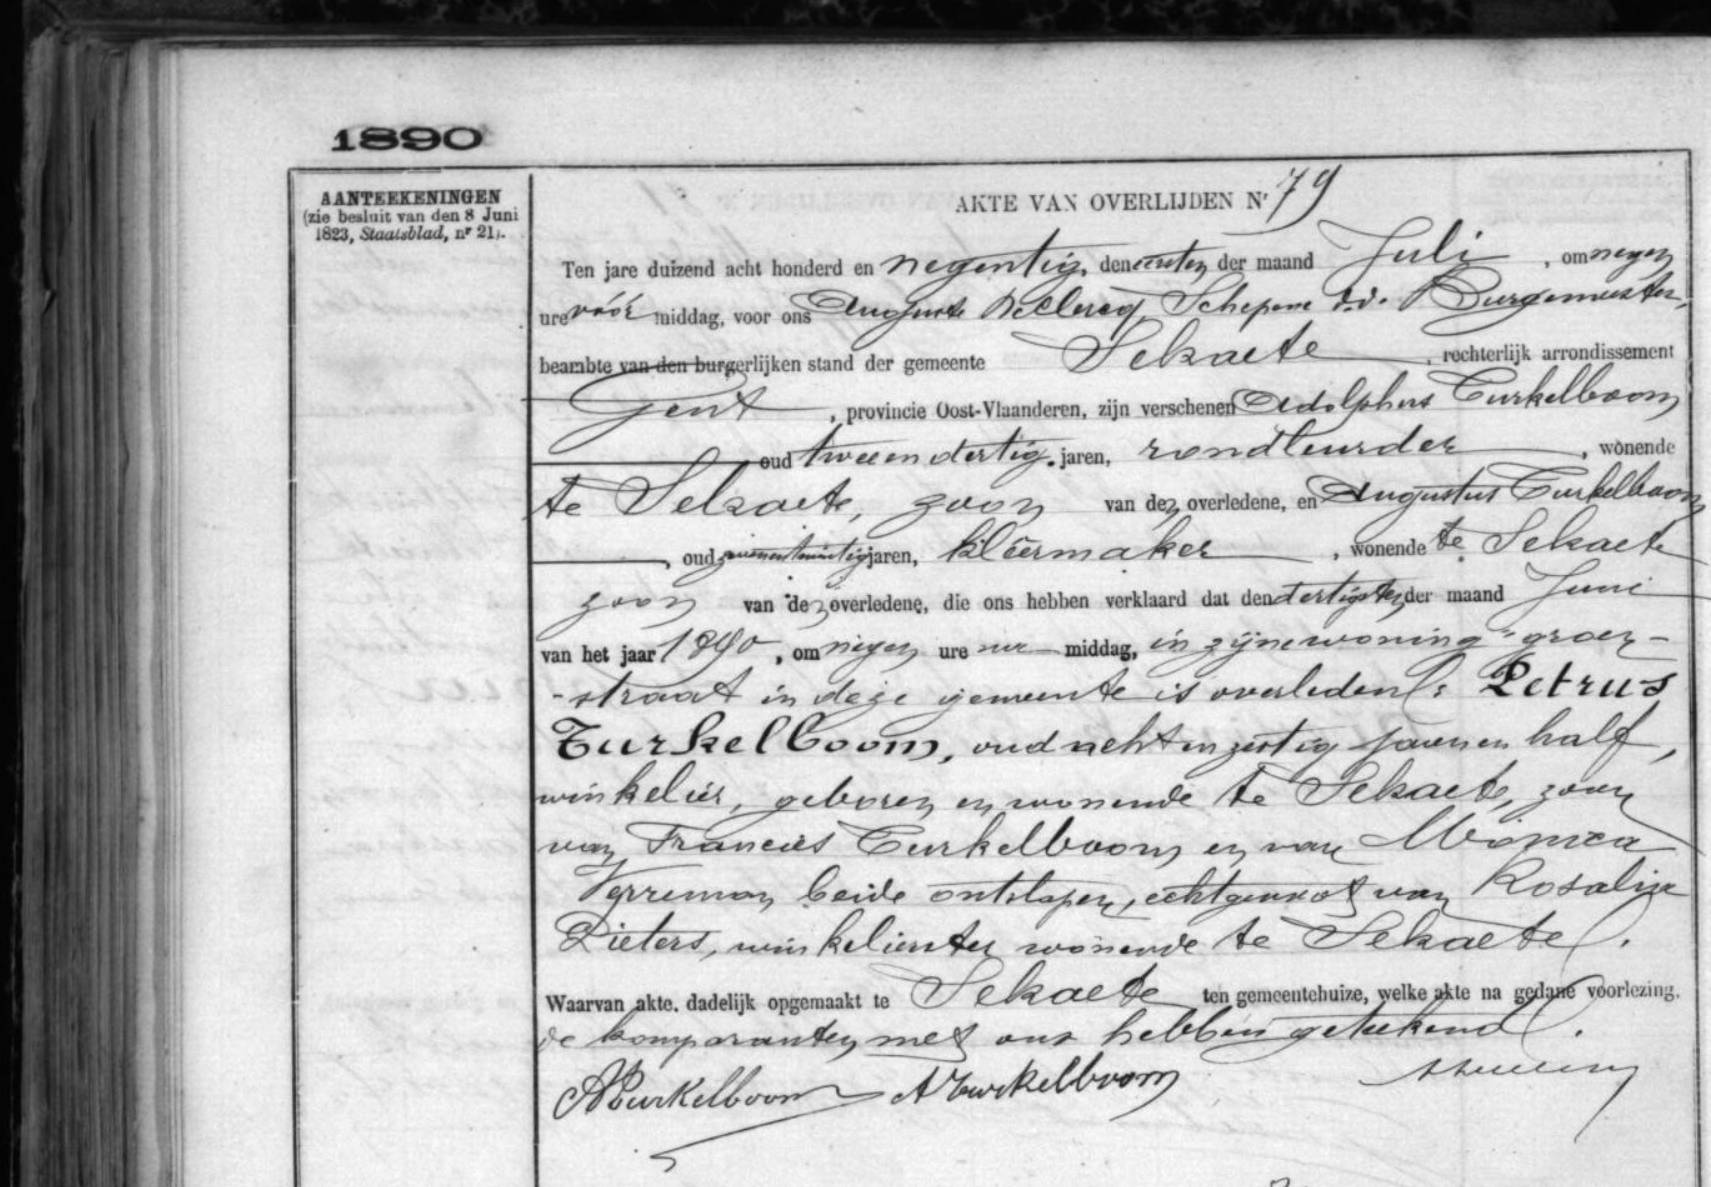 1890
AANTEEKENINGEN
(zie besluit van den 8 Juni
1823, Staatsblad, nr 21).
AKTE VAN OVERLIJDEN Nr 79
Ten jare duizend acht honderd en negentig, den eersten der maand Juli, om negen
ure vóór middag, voor ons Auguste DeClercq, Schepene d.d. Burgemeester,
beambte van den burgerlijken stand der gemeente Selzaete, rechterlijk arrondissement
Gent, provincie Oost-Vlaanderen, zijn verschenen Adolphus Turkelboom,
oud tweeendertig jaren, rondleurder, wonende
te Selzaete, zoon van den overledene, en Augustus Turkelboom
, oud jaren, kleermaker, wonende te Selzaete
zoon van den overledene, die ons hebben verklaard dat den dertigsten der maand Juni
van het jaar 1890, om negen ure middag, in zijne woning groen-
-straat in deze gemeente is overleden: Petrus
Turkelboom, oud achtenzestig jaren en half,
winkelier, geboren en wonende te Selzaete, zoon
van Francies Turkelboom en van Monica
Verreman, beide ontslapen, echtgenoot van Rosalie
Pieters, winkelierster wonende te Selzaete.
Waarvan akte, dadelijk opgemaakt te Selzaete ten gemeentehuize, welke akte na gedane voorlezing,
de komparanten met ons hebben geteekend.
A Turkelboom A Turkelboom